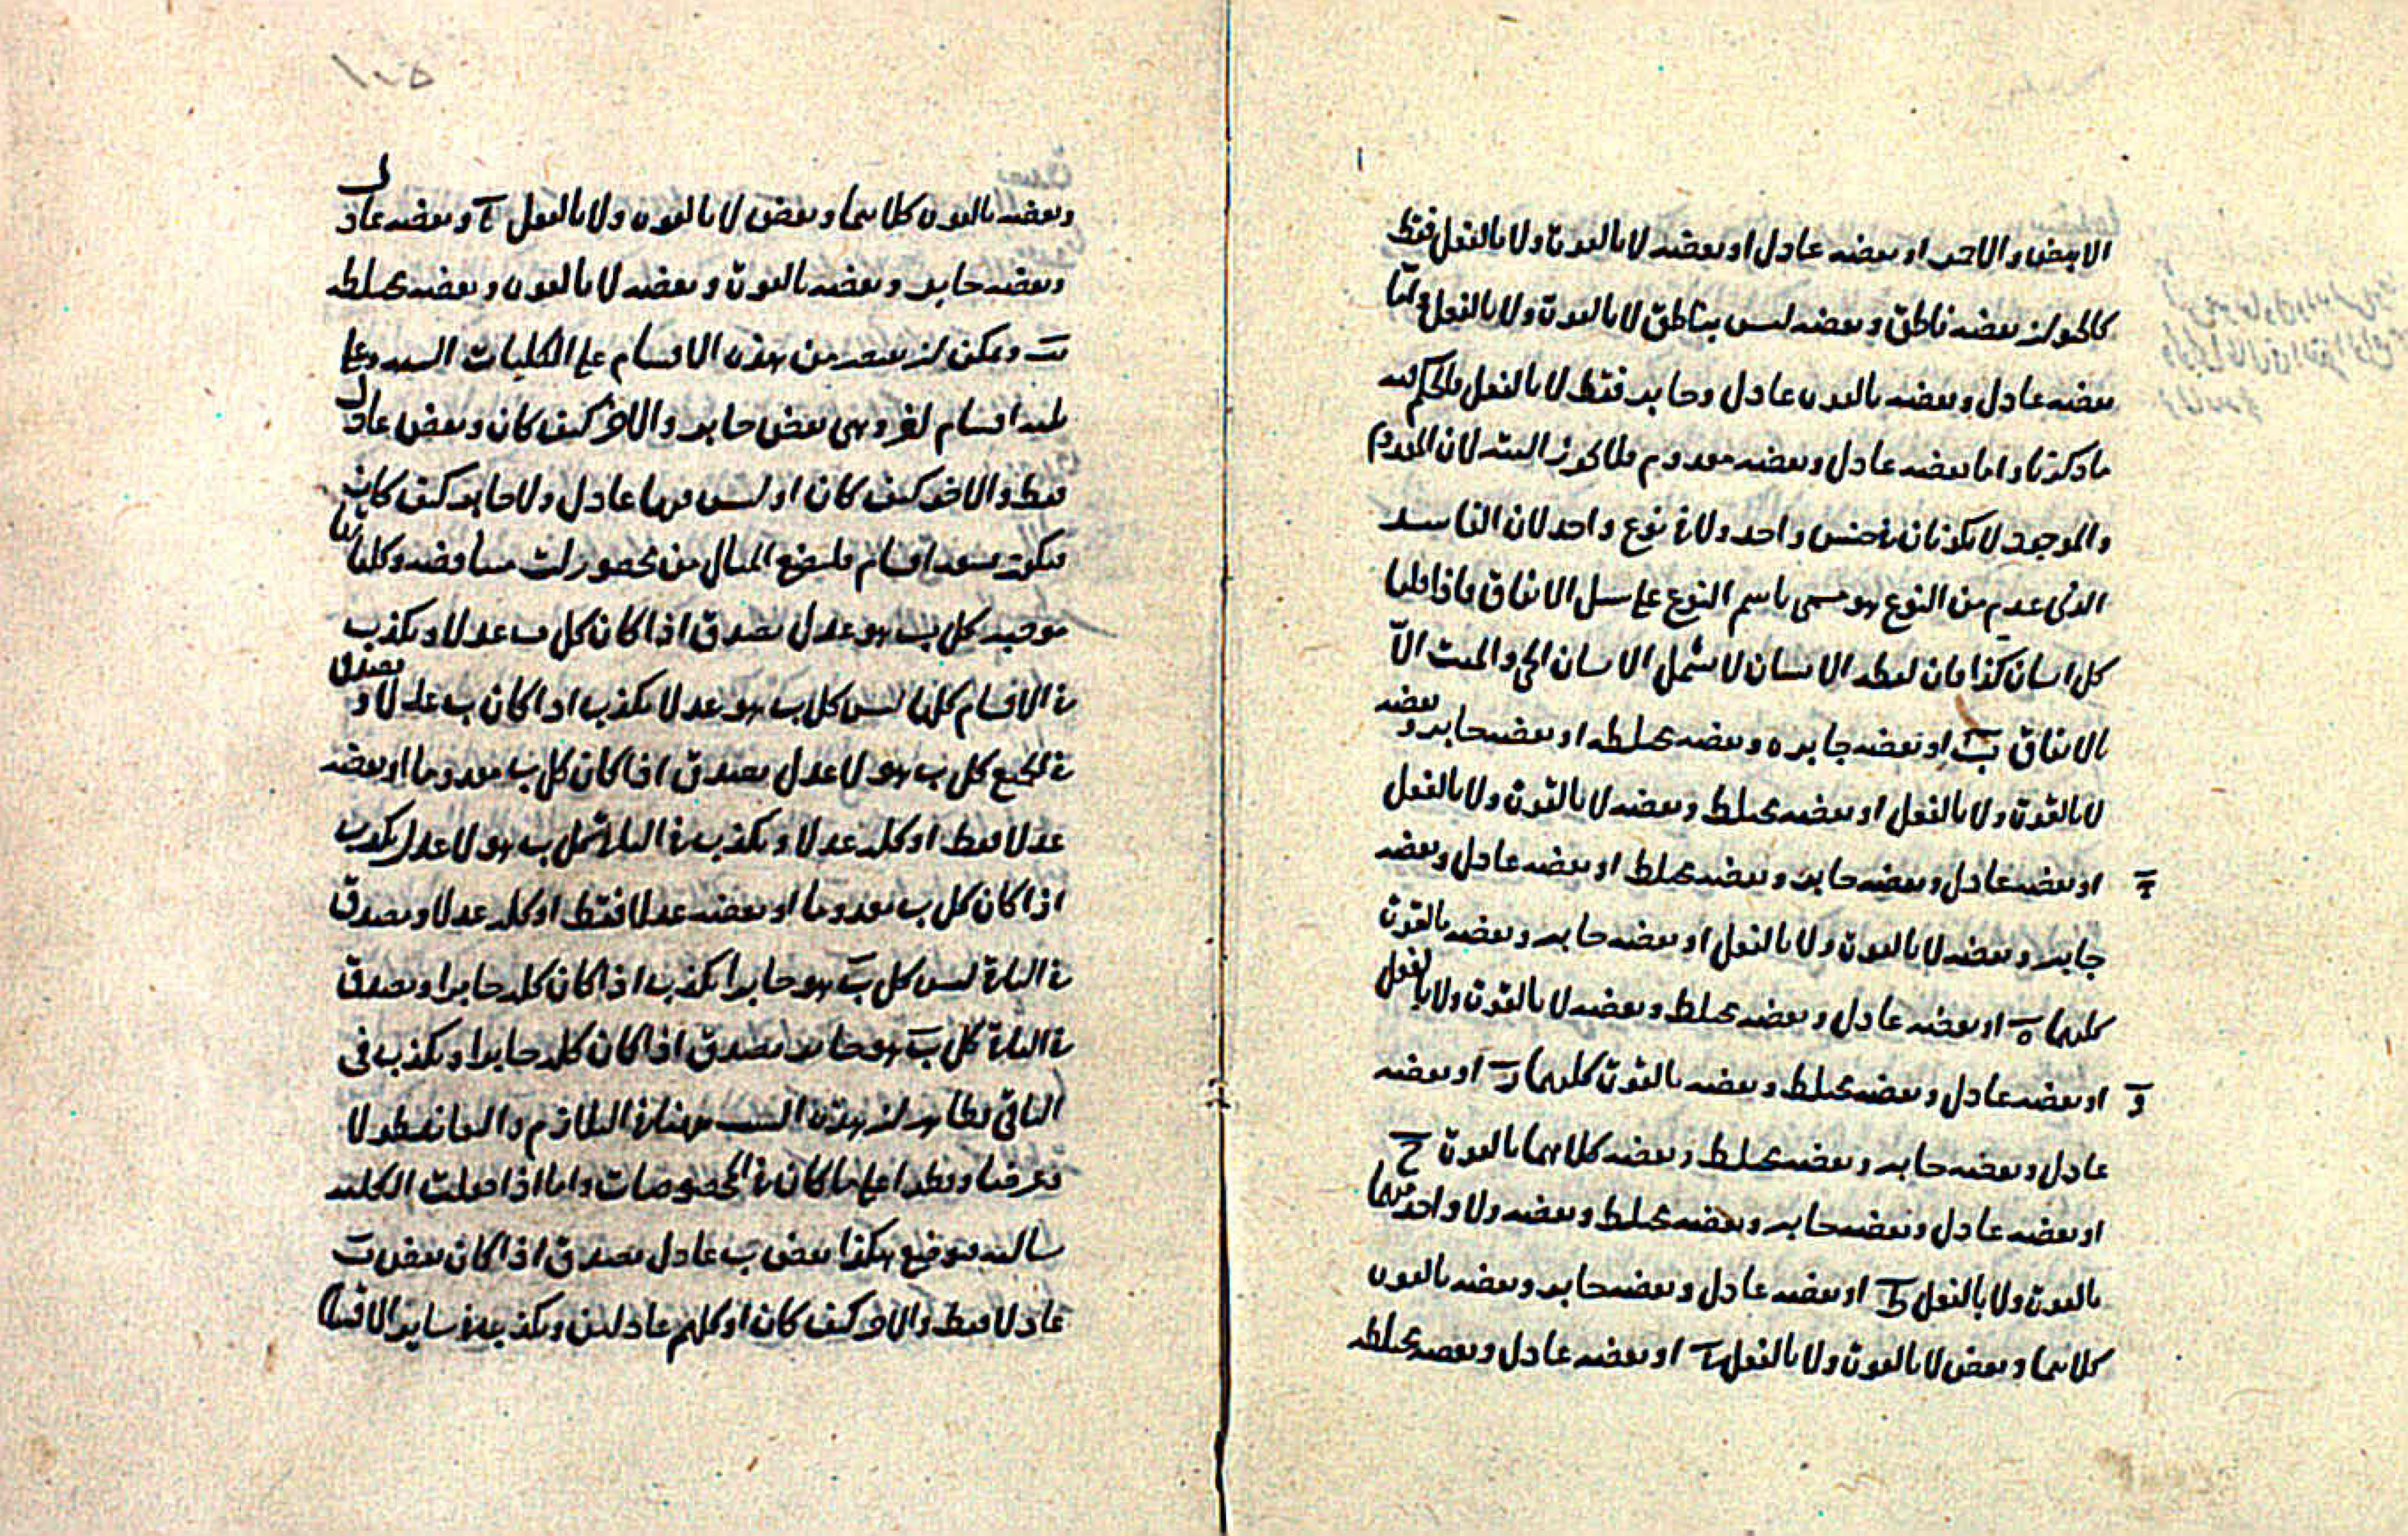 الابيض والاحمر او بعضه عادل او بعضه لا بالقوة ولا بالفعل فقط
كالحيوان بعضه ناطق وبعضه ليس بناطق لا بالقوة ولا بالفعل واما
بعضه عادل وبعضه بالقوة عادل وجاير فقط لا بالفعل فالحكم فيه
ما ذكرنا واما بعضه عادل وبعضه معدوم فلا يجوز البتة لان المعدوم
والموجود لا يكونان في جنس واحد ولا في نوع واحد لان الفاسد
الذي عدم من النوع هو مسمى باسم النوع على سبيل الاتفاق فاذا قلنا
كل انسان كذا فان لفظه الانسان لا يشمل الانسان الحي والميت الا
بالاتفاق ب او بعضه جاير ه وبعضه مختلط او بعضه جاير وبعضه
لا بالقوة ولا بالفعل او بعضه مختلط وبعضه لا بالقوة ولا بالفعل
او بعضه عادل وبعضه جاير وبعضه مختلط او بعضه عادل وبعضه
جاير وبعضه لا بالقوة ولا بالفعل او بعضه جاير وبعضه بالقوة
كليهما ه او بعضه عادل وبعضه مختلط وبعضه لا بالقوة ولا بالفعل
و او بعضه عادل وبعضه مختلط وبعضه بالقوة كليهما ز او بعضه
عادل وبعضه جاير وبعضه مختلط وبعضه كلاهما بالقوة ح
او بعضه عادل وبعضه جاير وبعضه مختلط وبعضه ولا واحد منهما
بالقوة ولا بالفعل ط او بعضه عادل وبعضه جاير وبعضه بالقوة
كلاهما وبعض لا بالقوة ولا بالفعل ى او بعضه عادل وبعضه مختلطه
١٠٥
وبعضه بالقوة كلاهما وبعض لا بالقوة ولا بالفعل وبعضه عادل
وبعضه جاير وبعضه بالقوة وبعضه لا بالقوة وبعضه مختلطه
ويمكن ان من هذه الاقسام على الكليات
اقسام اخر وهي بعض جاير والاخر كيف كان وبعض عادل
فقط والاخر كيف كان او ليس فيها عادل ولا جاير كيف كان
اقسام فلنضع المثال من محصورات متناقضه وكلياتها
موجبه كل ب هو عدل يصدق اذا كان كل ب عدلا ويكذب
في الاقسام كلها ليس كل ب هو عدلا يكذب اذا كان ب عدلا ويصدق
في الجميع كل ب هو لا عدل يصدق اذا كان كل ب معدوما او بعضه
عدلا فقط او كله عدلا ويكذب في ب هو لا عدل يكذب
اذا كان كل ب معدوما او بعضه عدلا فقط او كله عدلا ويصدق
في الباقي ليس كل ب هو جايرا يكذب اذا كان كله جايرا ويصدق
في الباقي كل ب هو جاير يصدق اذا كان كله جايرا ويكذب في
الباقي فظاهر ان هذه التلازم والتعاند ولا
على ما كان في المخصوصات واما اذا جعلت الكليه
سالبه فوضع هكذا بعض ب عادل يصدق اذا كان بعض ب
عادلا فقط والاخر كيف كان او كلهم عادلين ويكذب في ساير الاقسام